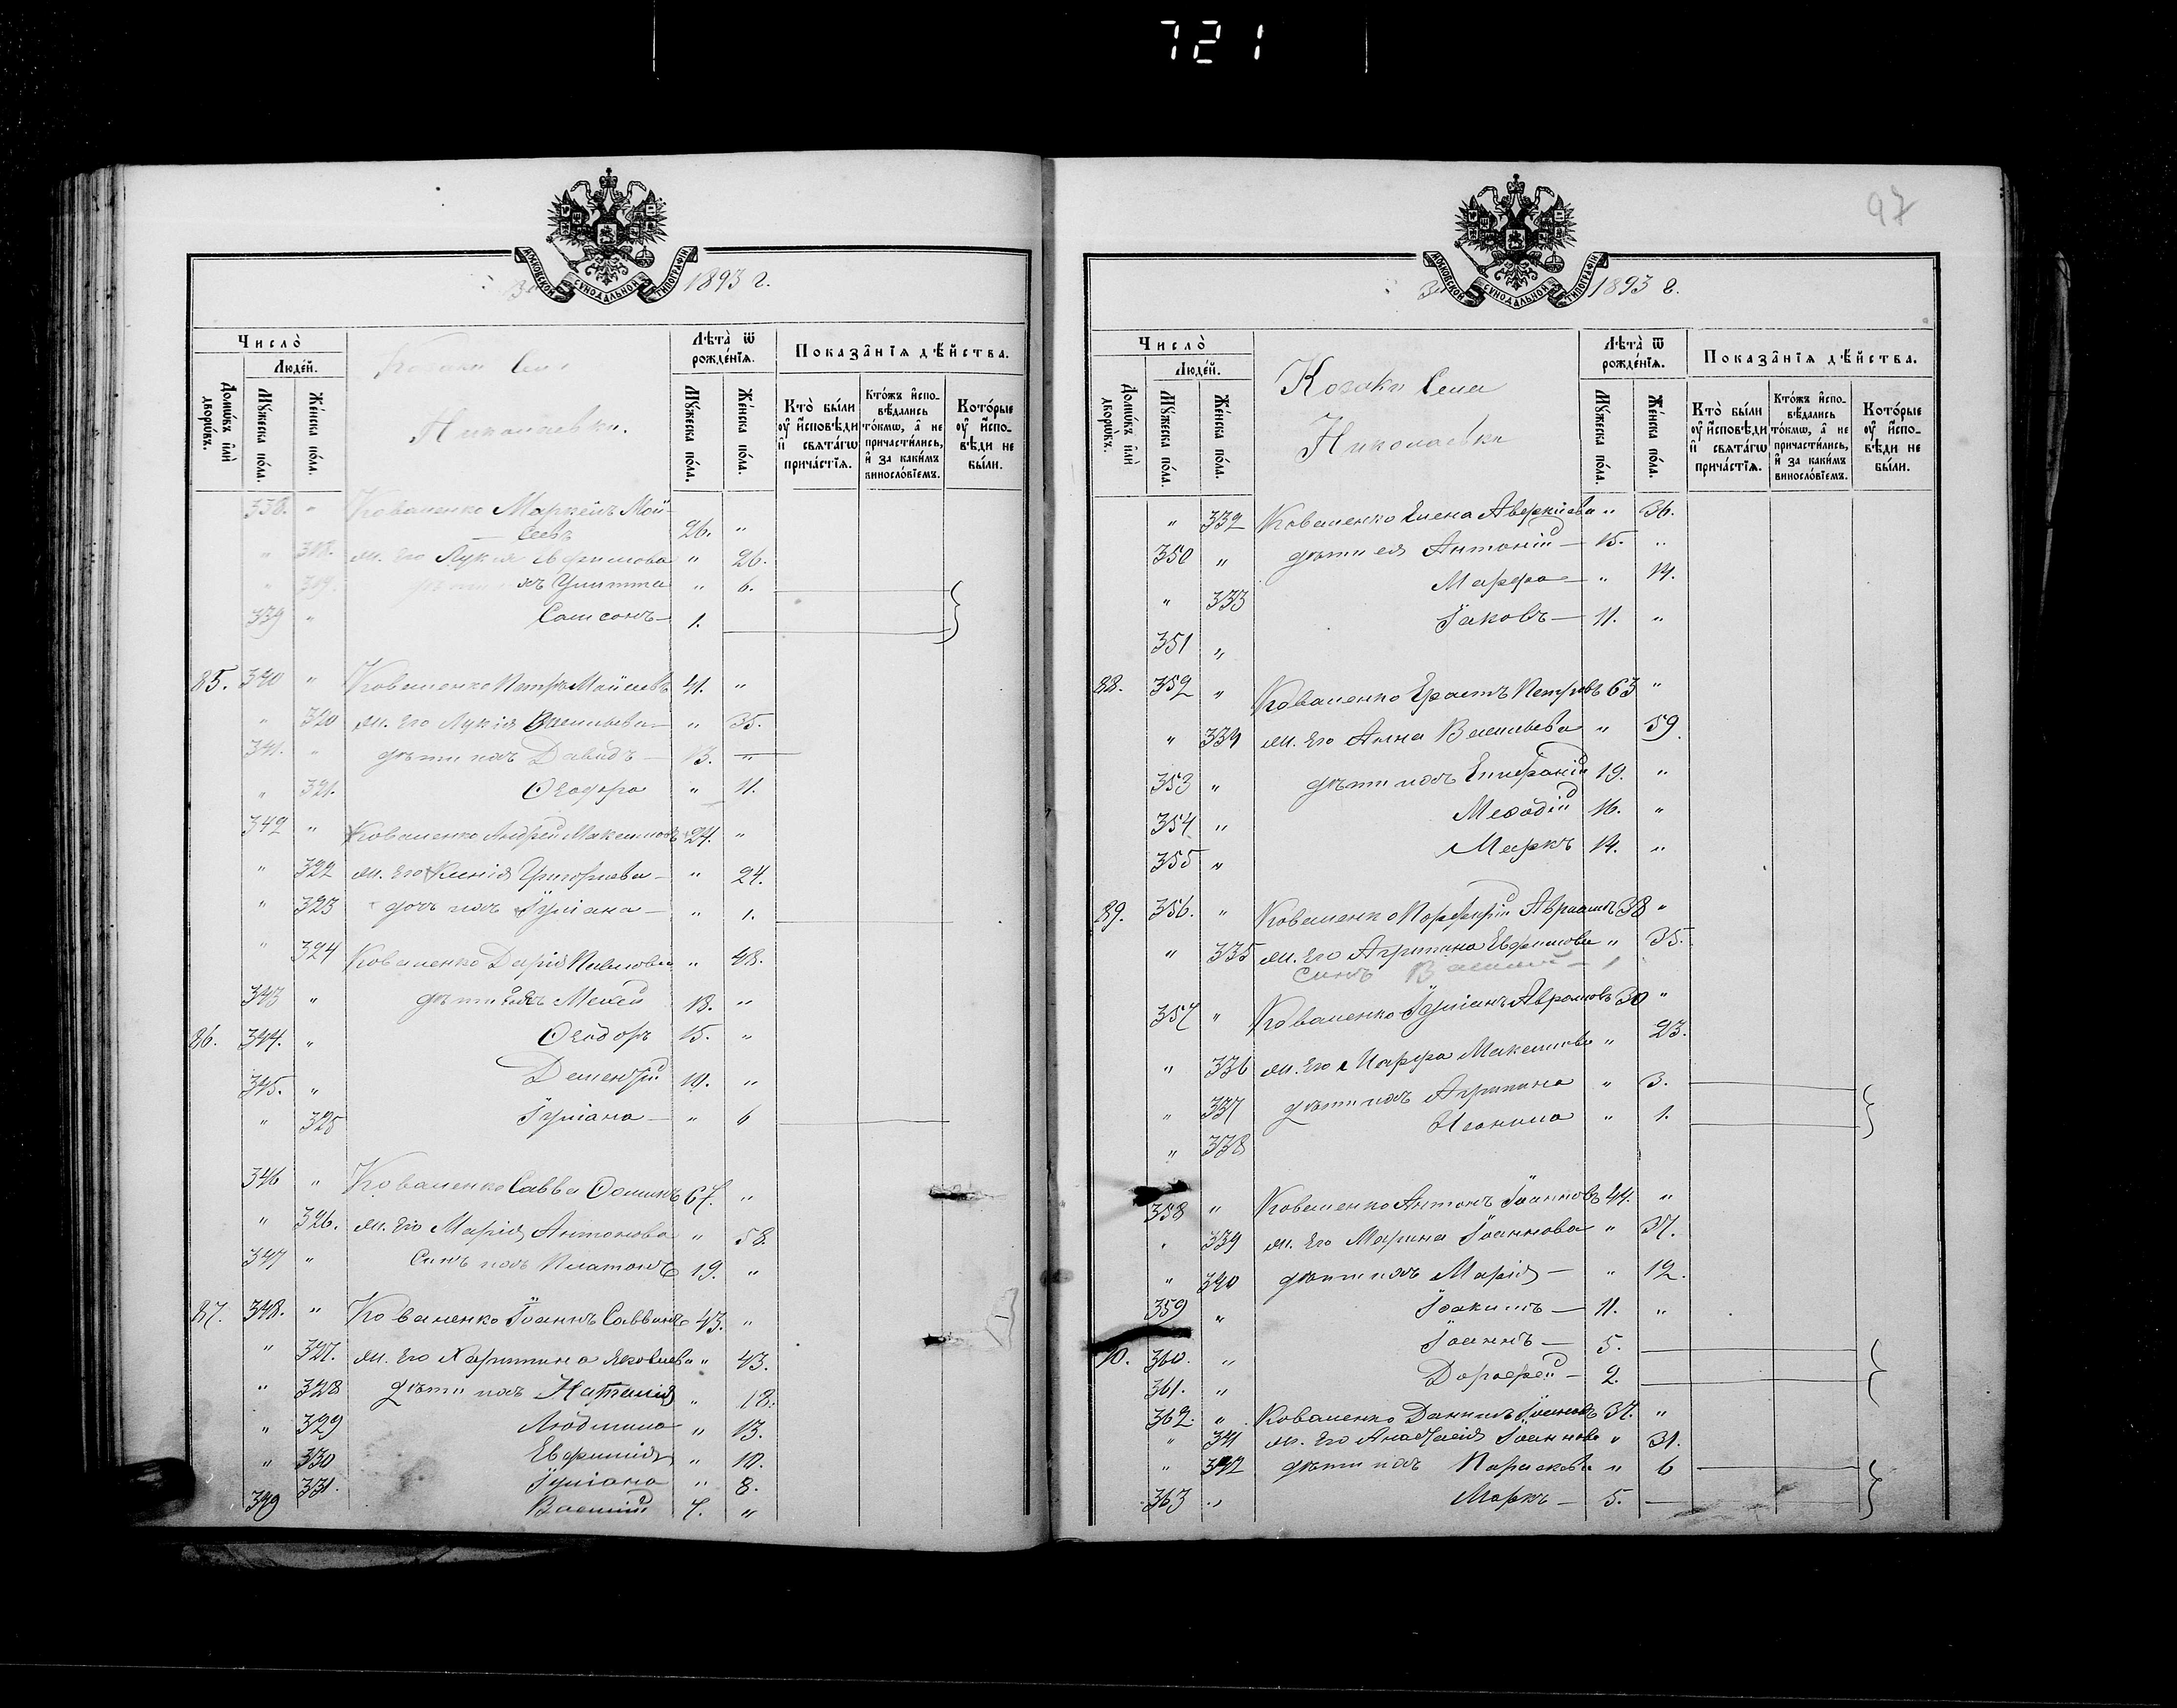 721
97
МОСКОВСКОЙ СѴНОДАЛЬНОЙ ТИПОГРАФІИ
За 1893 г.
Число̀
Люде́й.
Домѡ́въ и҆лѝ дворѡ́въ.
Мꙋ́жеска по́ла.
Же́нска по́ла.
Лѣ́та ѿ рожде́нїѧ.
Мꙋ́жеска по́ла.
Же́нска по́ла.
Показа̑нїѧ дѣ́йства.
Кто̀ бы́ли оу҆ и҆́сповѣди и҆ свѧта́гѡ прича́стїѧ.
Кто́жъ и҆спо-вѣ́дались то́кмѡ, а҆ не причасти́лись, и҆ за каки́мъ винословїемъ.
Кото́рые оу҆ и҆́спо-вѣди не бы́ли.
Козаки Села
Николаевки.
338. " Коваленко Маркелъ Мой-
сеевъ 26. "
" 318. ж. Его Лукія Ефимова " 26.
" 319. дѣти ихъ Улитта " 6.
339 " Самсонъ 1.
85. 340 " Коваленко Петръ Мойсеевъ 41. "
" 320 ж. Его Лукія Васильева " 35.
341. " дѣти ихъ Давидъ 13. "
" 321. Ѳеодора " 11.
342 " Коваленко Андрей Максимовъ 24. "
" 322 ж. Его Ксенія Григорьева " 24.
" 323 дочь ихъ Іуліана " 1.
" 324 Коваленко Дарія Павлова " 48.
343 " дѣти 18. "
86. 344. " Ѳеодоръ 15. "
345. " Деменрій 10. "
" 325 Іуліана " 6
346 " Коваленко Савва Ѳоминъ 67. "
" 326. ж. Его Марія Антонова " 58.
347 " Сынъ ихъ Платонъ 19. "
87. 348. " Коваленко Іоаннъ Саввинъ 43. "
" 327. ж. Его Харитина Яковлева " 43.
" 328 Дѣти ихъ Наталія " 18.
" 329 Людмила " 13.
" 330 Евфимія " 10.
331. Іуліана " 8.
349 Василій 7. "
МОСКОВСКОЙ СѴНОДАЛЬНОЙ ТИПОГРАФІИ
За 1893 г.
Число̀
Люде́й.
Домѡ́въ и҆лѝ дворѡ́въ.
Мꙋ́жеска по́ла.
Же́нска по́ла.
Лѣ́та ѿ рожде́нїѧ.
Мꙋ́жеска по́ла.
Же́нска по́ла.
Показа̑нїѧ дѣ́йства.
Кто̀ бы́ли оу҆ и҆́сповѣди и҆ свѧта́гѡ прича́стїѧ.
Кто́жъ и҆спо-вѣ́дались то́кмѡ, а҆ не причасти́лись, и҆ за каки́мъ винословїемъ.
Кото́рые оу҆ и҆́спо-вѣди не бы́ли.
Козаки Села
Николаевки
" 332 Коваленко Елена Аверкіева " 36.
350 " дѣти ея Антоній 15. "
" 333 Марфа " 14.
351 " Іаковъ 11. "
88. 352 " Коваленко Ерастъ Петровъ 63 "
" 334 ж. Его Анна Васильева " 59.
353 " дѣти ихъ Епифаній 19. "
354 " Меѳодій 16. "
355 " Маркъ 14. "
89. 356. " Коваленко Порфирій Авраамовъ 38 "
" 335 ж. Его Агрипина Евфимова " 35.
Сынъ Василій 1
357 " Коваленко Іуліанъ Аврамовъ 30 "
" 336 ж. Его Марфа Максимова " 23.
" 337 дѣти ихъ Агрипина " 3.
" 338 Неонила " 1.
358 " Коваленко Антонъ Іоанновъ 44. "
" 339 ж. Его Марина Іоаннова " 37.
" 340 дѣти ихъ Марія " 12.
359 " Іоакимъ 11. "
90. 360. " Іоаннъ 5.
361. " Дорофей 2.
362. " Коваленко Даніилъ Іоанновъ 37. "
" 341 ж. Его Анастасія Іоаннова " 31.
" 342 дѣти ихъ Параскева " 6
363 " Маркъ 5.